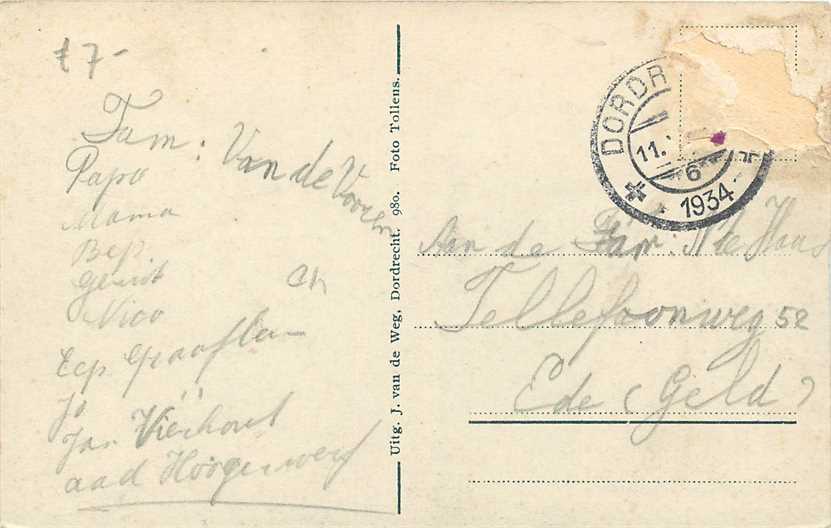 £ 7-
Fam: Van de
Papa
Mama
Bep
Gerrit
Nico
Ch
Eep Graafla-
Jo
Jan Vierhout
aad Hoogerwerf
Uitg. J. van de Weg, Dordrecht. 980. Foto Tollens.
DORDR T
11. 6
1934
Aan de Fam: N te Haas
Tellefoonweg 52
Ede (Geld)